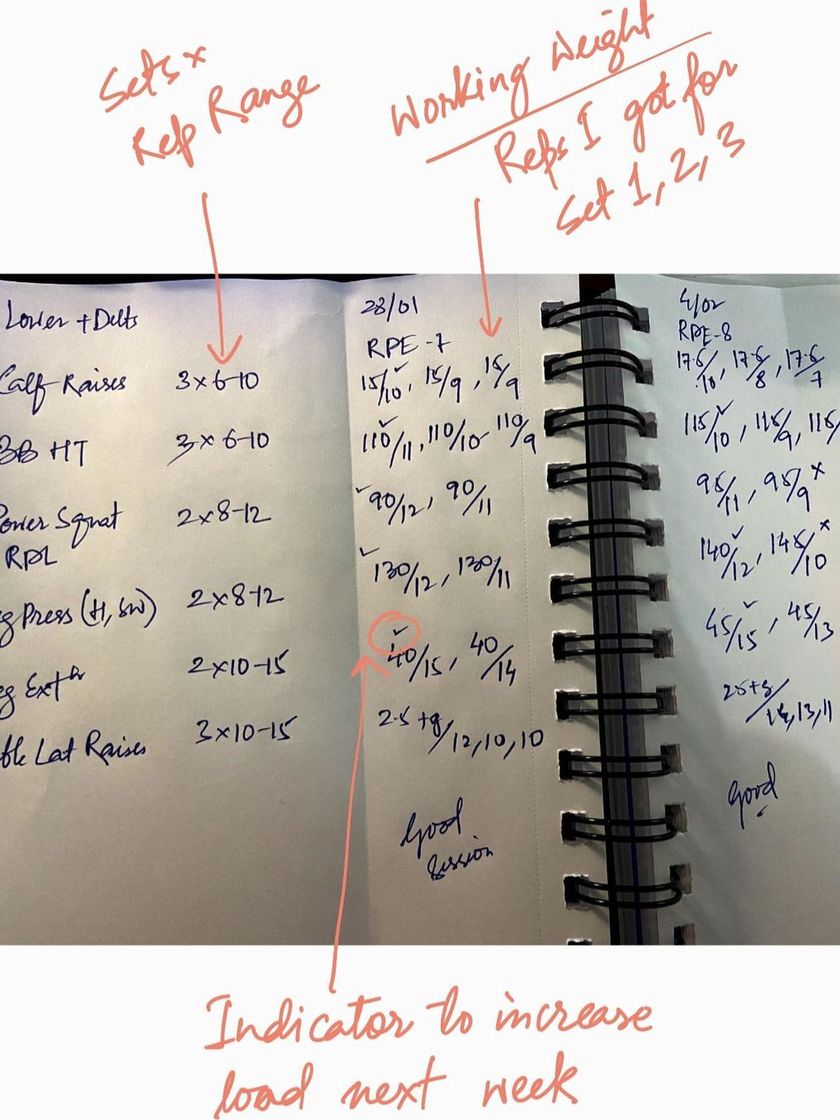 Sets x
Rep Range
Working Weight
Reps I got for
Set 1, 2, 3
Lower + Delts
28/01
4/02
RPE-7
RPE-8
Calf Raises 3x6-10 15/10✓, 15/9, 15/9 17.5/10, 17.5/8, 17.5/7
BB HT 3x6-10 110/11✓, 110/10, 110/9 115/10✓, 115/9, 115/
Power Squat 2x8-12 ✓90/12, 90/11 95/11, 95/9 x
RDL ✓130/12, 130/11 140/12✓, 145/10 x
g Press (H, SW) 2x8-12
g Extn 2x10-15 ✓40/15, 40/14 45/15✓, 45/13
ble Lat Raises 3x10-15 2.5+g/12,10,10 /14,13,11
Good
Session
Good
Indicator to increase
load next week